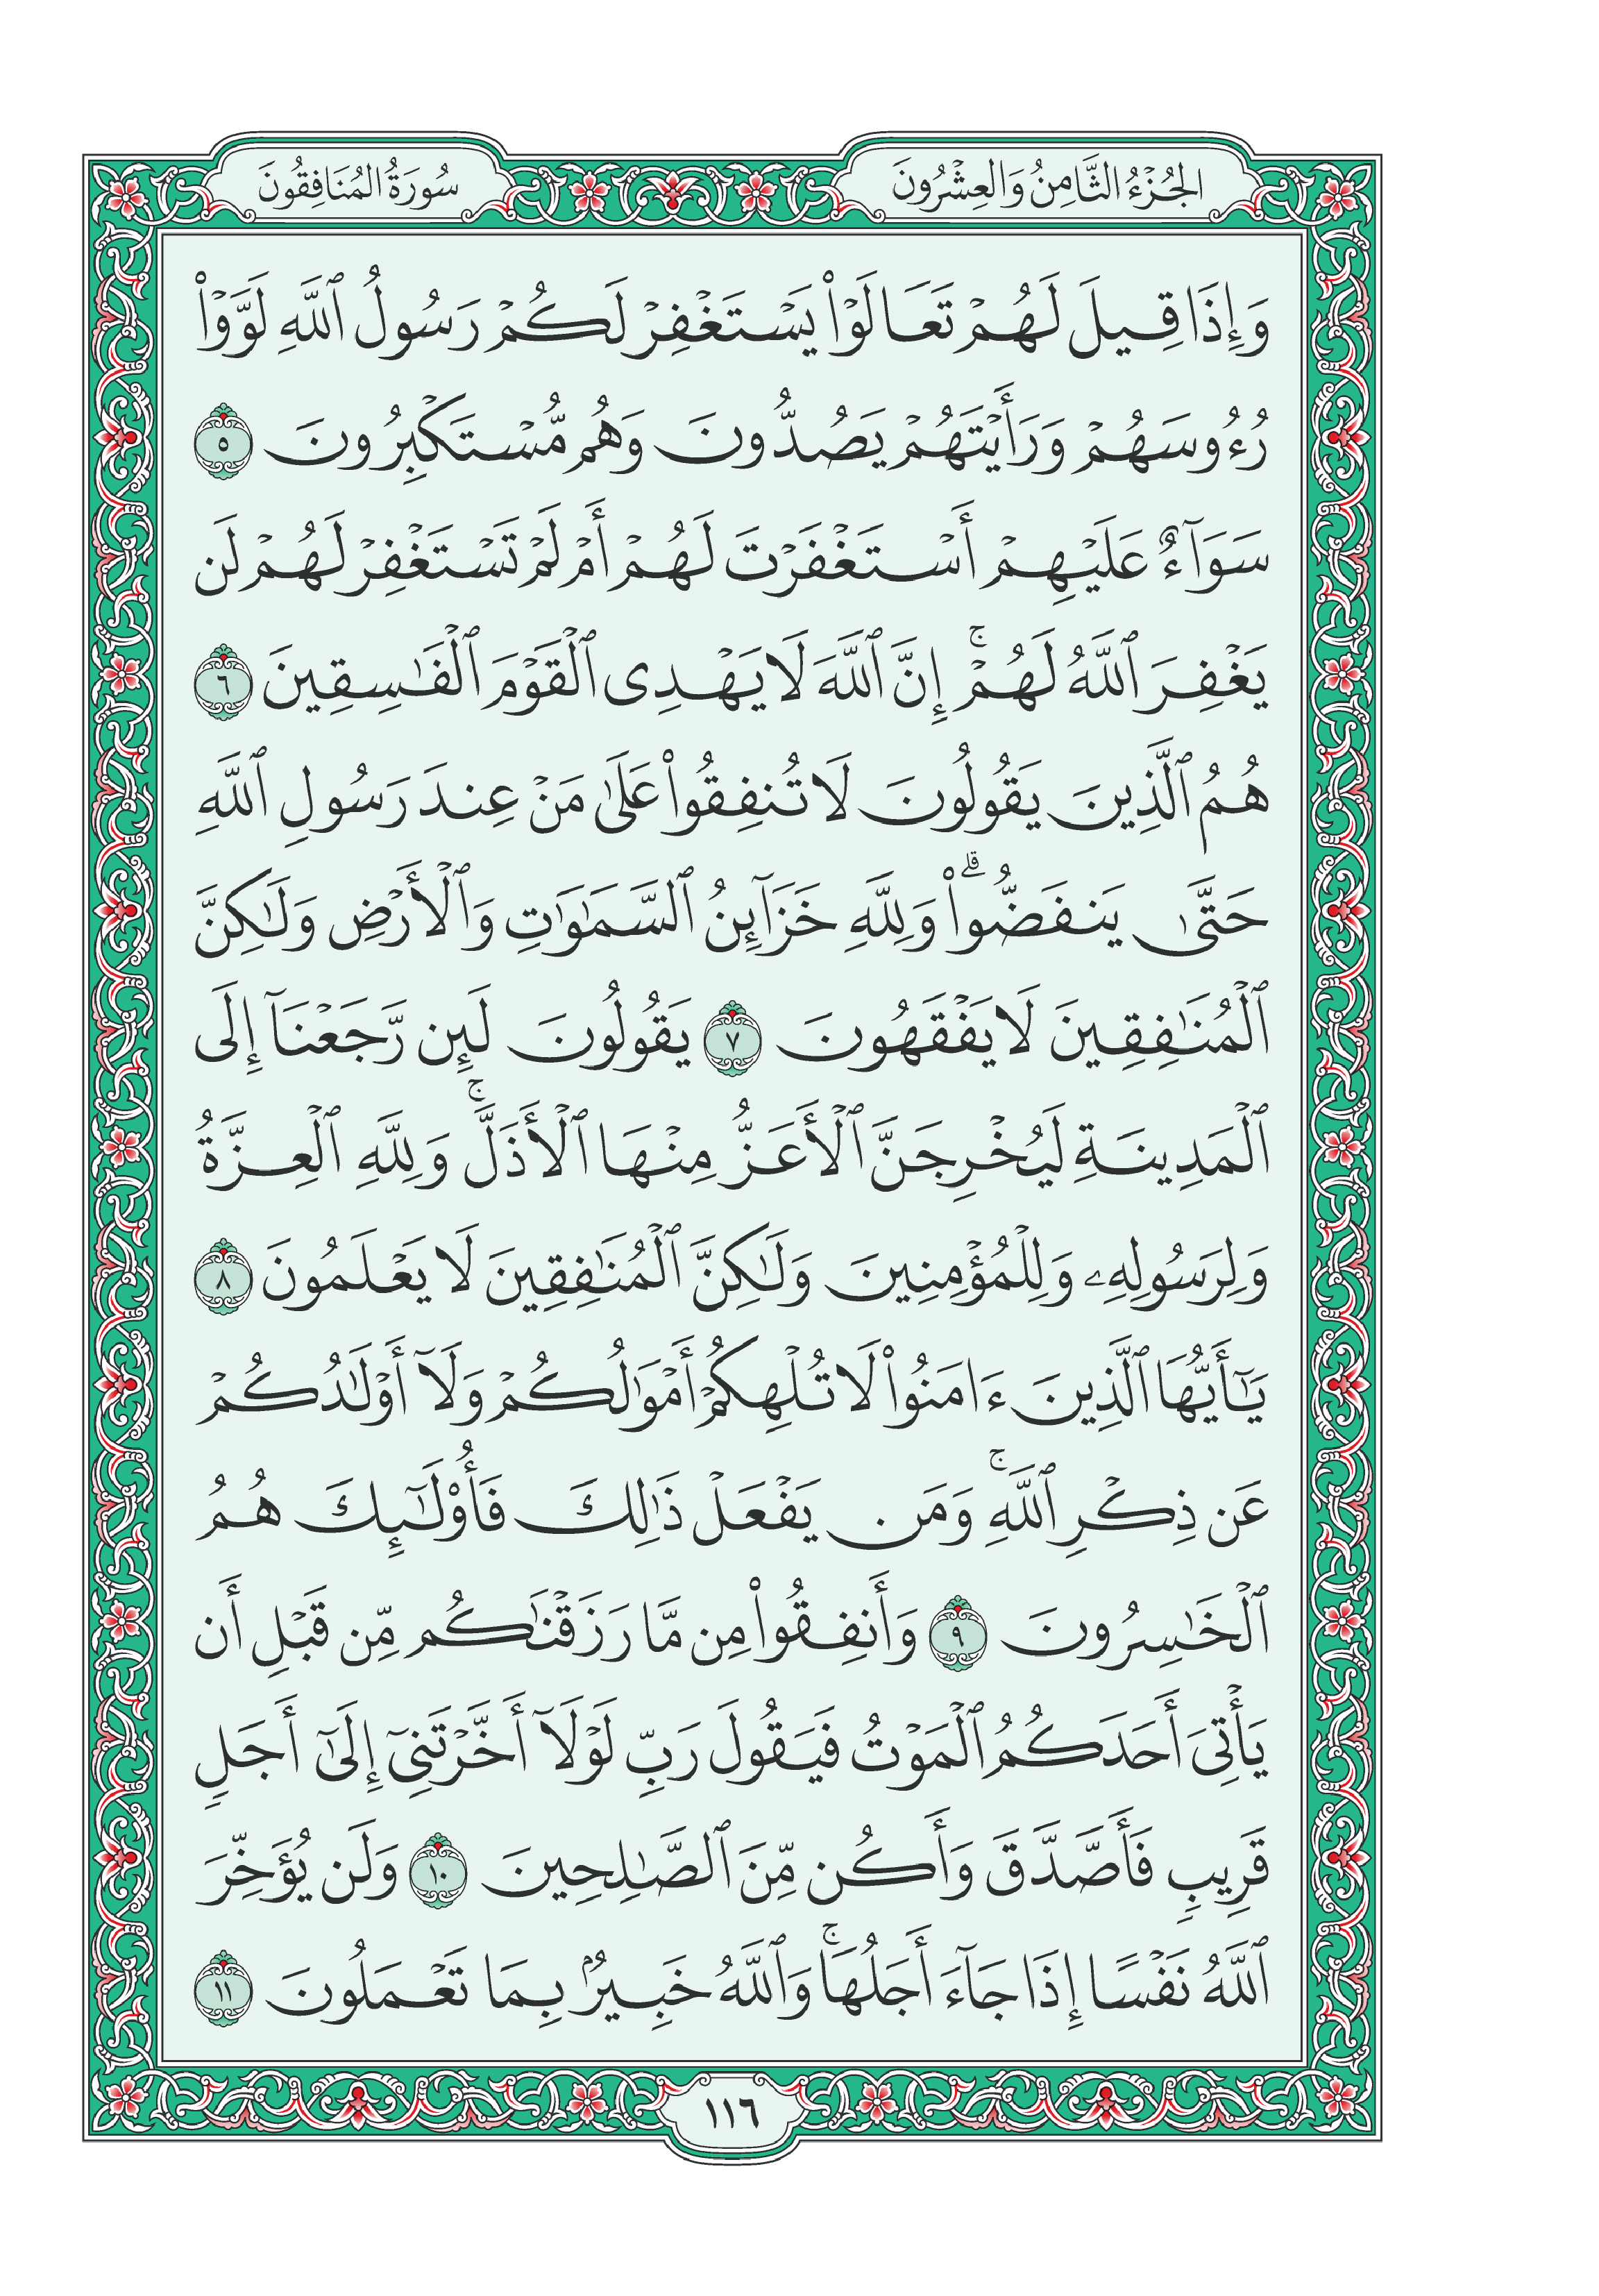 الجُزْءُ الثَّامِنُ وَالعِشْرُونَ
سُورَةُ المُنَافِقُونَ
وَإِذَا قِيلَ لَهُمۡ تَعَالَوۡاْ يَسۡتَغۡفِرۡ لَكُمۡ رَسُولُ ٱللَّهِ لَوَّوۡاْ
رُءُوسَهُمۡ وَرَأَيۡتَهُمۡ يَصُدُّونَ وَهُم مُّسۡتَكۡبِرُونَ ٥
سَوَآءٌ عَلَيۡهِمۡ أَسۡتَغۡفَرۡتَ لَهُمۡ أَمۡ لَمۡ تَسۡتَغۡفِرۡ لَهُمۡ لَن
يَغۡفِرَ ٱللَّهُ لَهُمۡۚ إِنَّ ٱللَّهَ لَا يَهۡدِي ٱلۡقَوۡمَ ٱلۡفَٰسِقِينَ ٦
هُمُ ٱلَّذِينَ يَقُولُونَ لَا تُنفِقُواْ عَلَىٰ مَنۡ عِندَ رَسُولِ ٱللَّهِ
حَتَّىٰ يَنفَضُّواْۗ وَلِلَّهِ خَزَآئِنُ ٱلسَّمَٰوَٰتِ وَٱلۡأَرۡضِ وَلَٰكِنَّ
ٱلۡمُنَٰفِقِينَ لَا يَفۡقَهُونَ ٧ يَقُولُونَ لَئِن رَّجَعۡنَآ إِلَى
ٱلۡمَدِينَةِ لَيُخۡرِجَنَّ ٱلۡأَعَزُّ مِنۡهَا ٱلۡأَذَلَّۚ وَلِلَّهِ ٱلۡعِزَّةُ
وَلِرَسُولِهِۦ وَلِلۡمُؤۡمِنِينَ وَلَٰكِنَّ ٱلۡمُنَٰفِقِينَ لَا يَعۡلَمُونَ ٨
يَٰٓأَيُّهَا ٱلَّذِينَ ءَامَنُواْ لَا تُلۡهِكُمۡ أَمۡوَٰلُكُمۡ وَلَآ أَوۡلَٰدُكُمۡ
عَن ذِكۡرِ ٱللَّهِۚ وَمَن يَفۡعَلۡ ذَٰلِكَ فَأُوْلَٰٓئِكَ هُمُ
ٱلۡخَٰسِرُونَ ٩ وَأَنفِقُواْ مِن مَّا رَزَقۡنَٰكُم مِّن قَبۡلِ أَن
يَأۡتِيَ أَحَدَكُمُ ٱلۡمَوۡتُ فَيَقُولَ رَبِّ لَوۡلَآ أَخَّرۡتَنِيٓ إِلَىٰٓ أَجَلٖ
قَرِيبٖ فَأَصَّدَّقَ وَأَكُن مِّنَ ٱلصَّٰلِحِينَ ١٠ وَلَن يُؤَخِّرَ
ٱللَّهُ نَفۡسًا إِذَا جَآءَ أَجَلُهَاۚ وَٱللَّهُ خَبِيرُۢ بِمَا تَعۡمَلُونَ ١١
١١٦